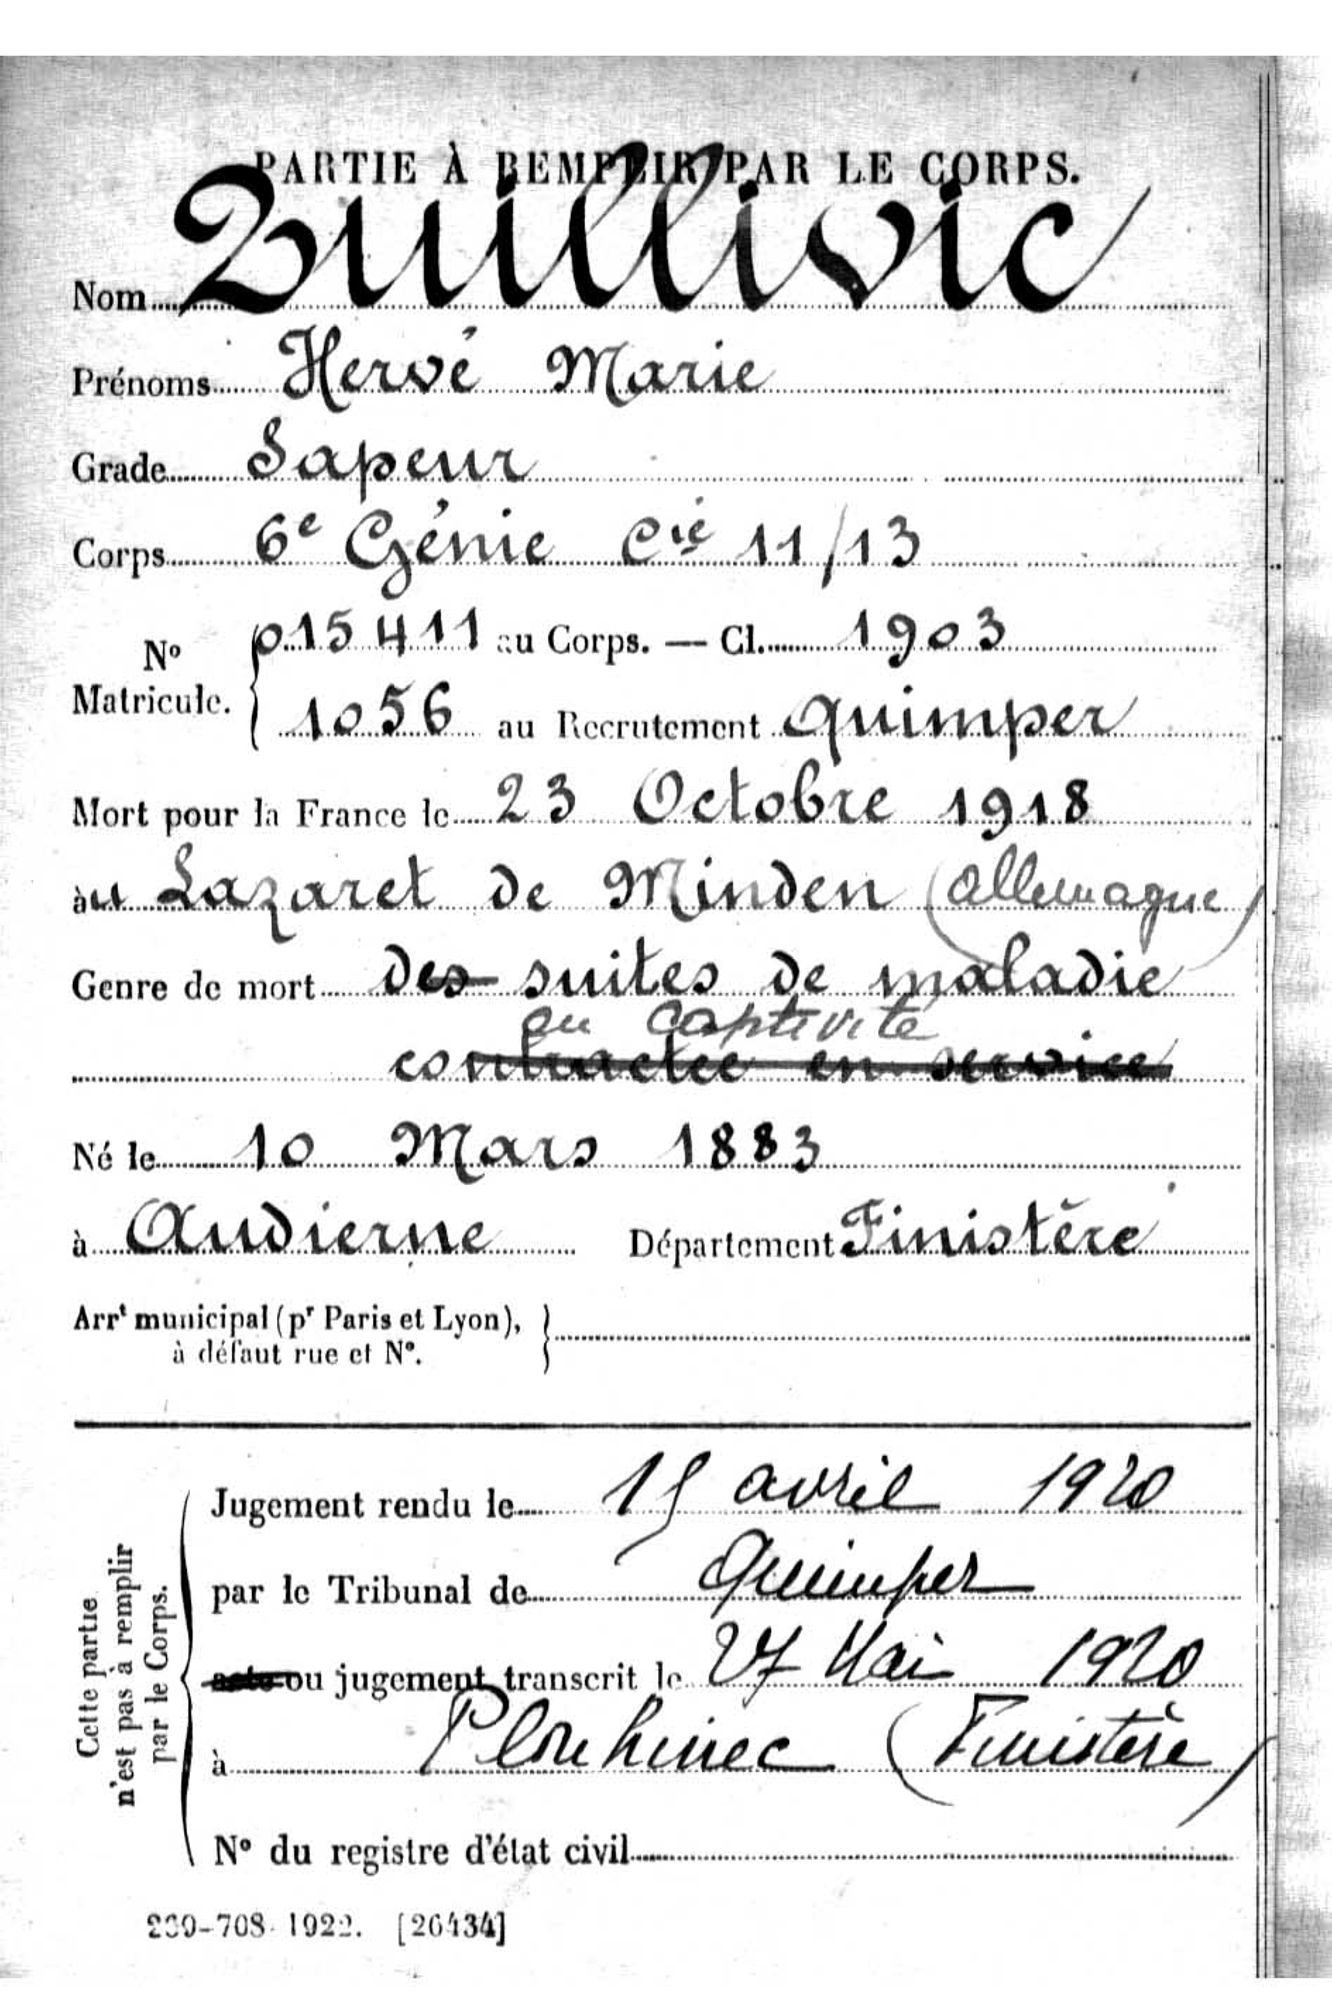 PARTIE À REMPLIR PAR LE CORPS.
Nom Quillivic
Prénoms Hervé Marie
Grade Sapeur
Corps 6e Génie Cie 11/13
No Matricule. { 015411 au Corps. — Cl. 1903
1056 au Recrutement Quimper
Mort pour la France le 23 Octobre 1918
àu Lazaret de Minden (Allemagne)
Genre de mort des suites de maladie
en captivité
contractée en service
Né le 10 Mars 1883
à Audierne Département Finistère
Arrt municipal (pr Paris et Lyon), }
à défaut rue et N°.
Cette partie
n'est pas à remplir
par le Corps.
Jugement rendu le 15 avril 1920
par le Tribunal de Quimper
acte ou jugement transcrit le 27 Mai 1920
à Plouhinec (Finistère)
N° du registre d'état civil
-708-1922. [26434]